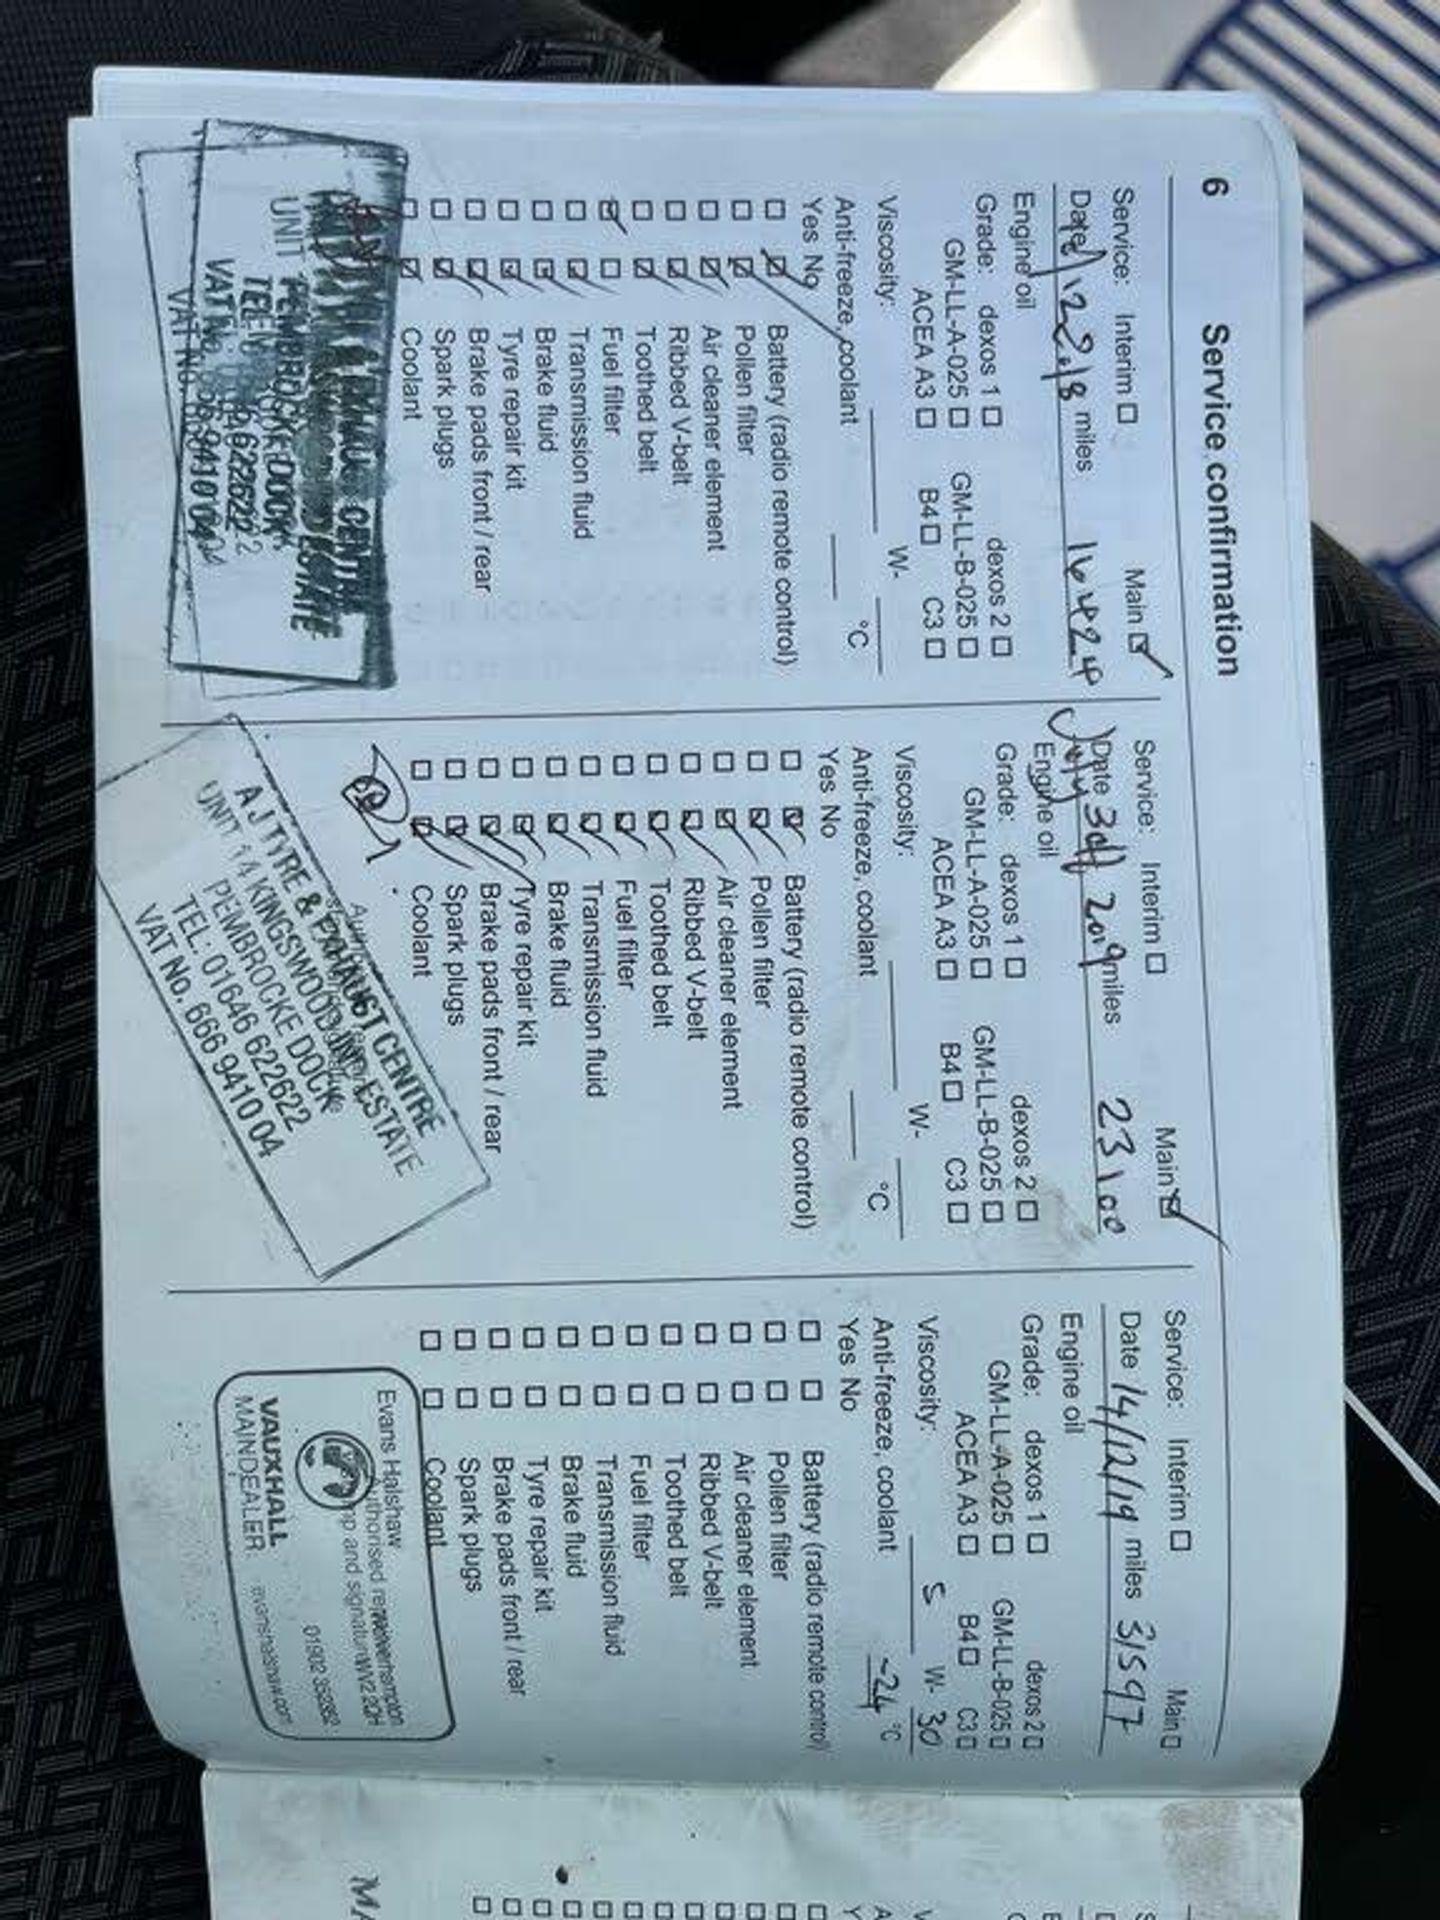 6 Service confirmation
Service: Interim ☐ Main ☑
Date 12 2018 miles 16424
Engine oil
Grade: dexos 1 ☐ dexos 2 ☐
GM-LL-A-025 ☐ GM-LL-B-025 ☐
ACEA A3 ☐ B4 ☐ C3 ☐
Viscosity: W-
Anti-freeze, coolant °C
Yes No
☐ ☑ Battery (radio remote control)
☐ ☑ Pollen filter
☐ ☑ Air cleaner element
☐ ☑ Ribbed V-belt
☐ ☑ Toothed belt
☑ ☐ Fuel filter
☐ ☑ Transmission fluid
☐ ☑ Brake fluid
☐ ☑ Tyre repair kit
☐ ☑ Brake pads front / rear
☐ ☑ Spark plugs
☐ ☑ Coolant
CENTRE
UNIT ESTATE
PEMBROCKE DOCK
TEL: 622622
VAT No. 9410 04
Service: Interim ☐ Main ☑
Date July 3rd 2019 miles 23100
Engine oil
Grade: dexos 1 ☐ dexos 2 ☐
GM-LL-A-025 ☐ GM-LL-B-025 ☐
ACEA A3 ☐ B4 ☐ C3 ☐
Viscosity: W-
Anti-freeze, coolant °C
Yes No
☐ ☑ Battery (radio remote control)
☐ ☑ Pollen filter
☐ ☑ Air cleaner element
☐ ☑ Ribbed V-belt
☐ ☑ Toothed belt
☐ ☑ Fuel filter
☐ ☑ Transmission fluid
☐ ☑ Brake fluid
☐ ☑ Tyre repair kit
☐ ☑ Brake pads front / rear
☐ ☑ Spark plugs
☐ ☑ Coolant
A J TYRE & EXHAUST CENTRE
UNIT 14 KINGSWOOD IND ESTATE
PEMBROCKE DOCK
TEL: 01646 622622
VAT No. 666 9410 04
Service: Interim ☐ Main ☐
Date 14/12/19 miles 31597
Engine oil
Grade: dexos 1 ☐ dexos 2 ☐
GM-LL-A-025 ☐ GM-LL-B-025 ☐
ACEA A3 ☐ B4 ☐ C3 ☐
Viscosity: 5 W- 30
Anti-freeze, coolant -24 °C
Yes No
☐ ☐ Battery (radio remote control)
☐ ☐ Pollen filter
☐ ☐ Air cleaner element
☐ ☐ Ribbed V-belt
☐ ☐ Toothed belt
☐ ☐ Fuel filter
☐ ☐ Transmission fluid
☐ ☐ Brake fluid
☐ ☐ Tyre repair kit
☐ ☐ Brake pads front / rear
☐ ☐ Spark plugs
☐ ☐ Coolant
Evans Halshaw
Wolverhampton
WV2 2QH
VAUXHALL
MAINDEALER
evanshalshaw.com